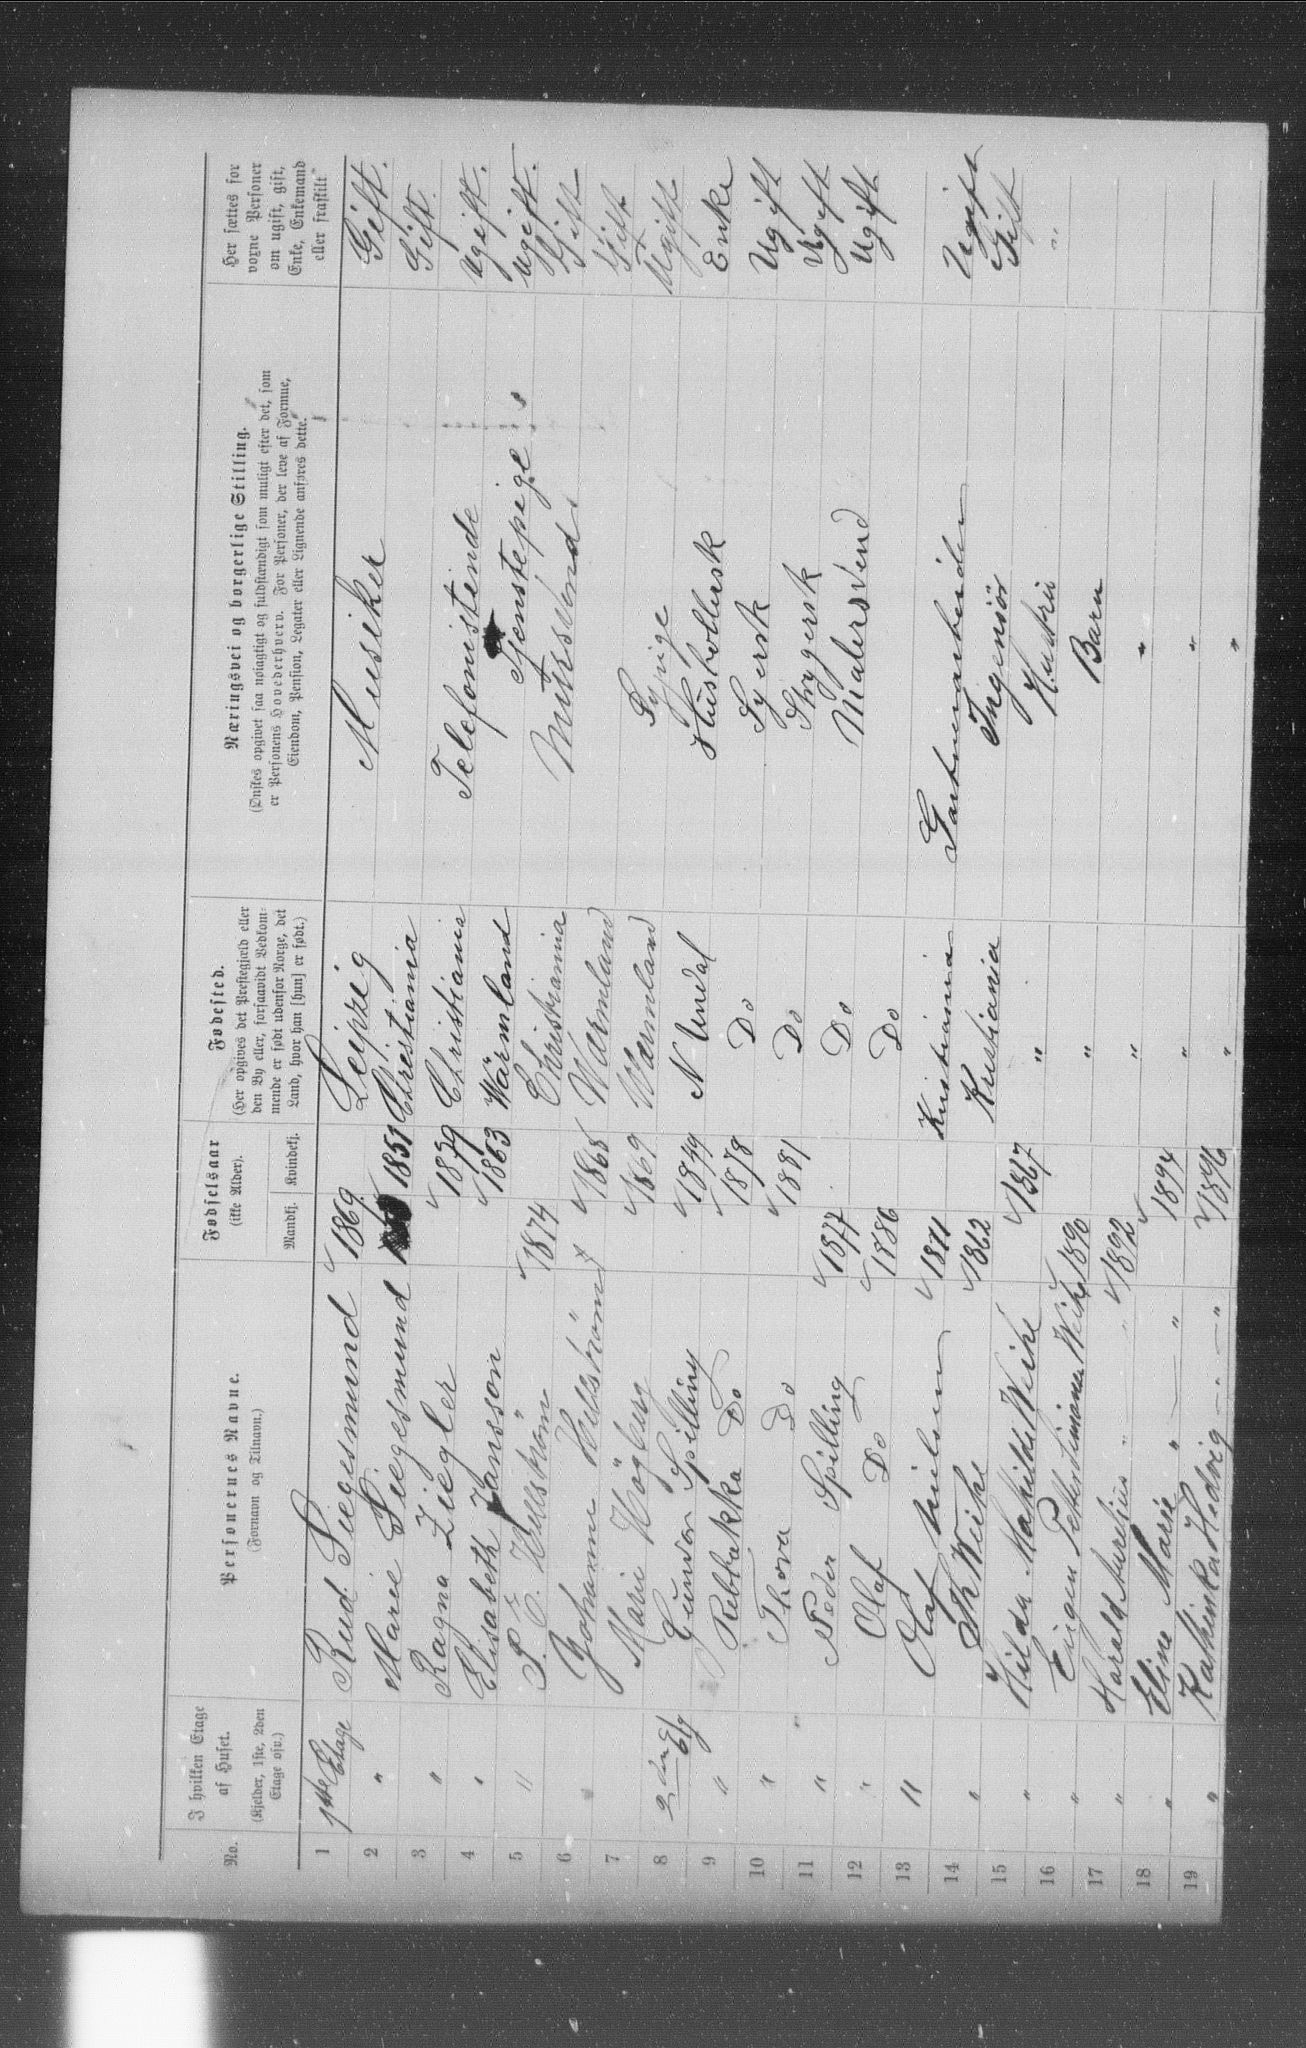 No.
I hvilken Etage af Huset.
(Kjelder, 1ste, 2den Etage osv.)
Personernes Navne.
(Fornavn og Tilnavn.)
Fødselsaar
(ikke Alder).
Mandkj. Kvindekj.
Fødested.
(Her opgives det Præstegjeld eller den By eller, forsaavidt Vedkommende er født udenfor Norge, det Land, hvor han [hun] er født.)
Næringsvei og borgerlige Stilling.
(Ønskes opgivet saa nøiagtigt og fuldstændigt som muligt efter det, som er Personens Hovederhverv. For Personer, der leve af Formue, Eiendom, Pension, Legater eller Lignende anføres dette.
Her sættes for voxne Personer om ugift, gift, Enke, Enkemand eller fraskilt
1 1ste Etage Rud. Siegesmund 1869 Leipzig Musiker Gift.
2 " Marie Siegesmund 1851 Christiania Gift.
3 " Ragna Ziegler 1879 Christiania Telefonistinde Ugift.
4 " Elisabeth Jansson 1863 Wärmland Tjenstepige Ugift.
5 " P. E. Hellström 1874 Christiania Murssvend Gift
6 Johanne Hellström 1868 Wærmland Gift
7 Marie Högberg 1869 Wærmland Sypige Ugift
8 2den Etg Gunvor Spilling 1849 N Undal Husholdersk Enke
9 " Rebbekka Do 1878 Do Syersk Ugift
10 " Thora Do 1881 Do Strygersk Ugift
11 " Peder Spilling 1877 Do Malersvend Ugift
12 " Olaf Do 1886 Do
13 " Olaf Nielsen 1871 Kristiania Gartnerarbeider Ugift
14 " Th Weihe 1862 Kristiania Ingeniör Gift
15 " Hilda Mathilde Weihe 1867 " Hustru "
16 " Eugen Petter Weihe 1890 " Barn
17 " Harald Aurelius " 1892 " "
18 " Eline Marie " " 1894 " "
19 " Kathinka Hedvig " " 1896 " "